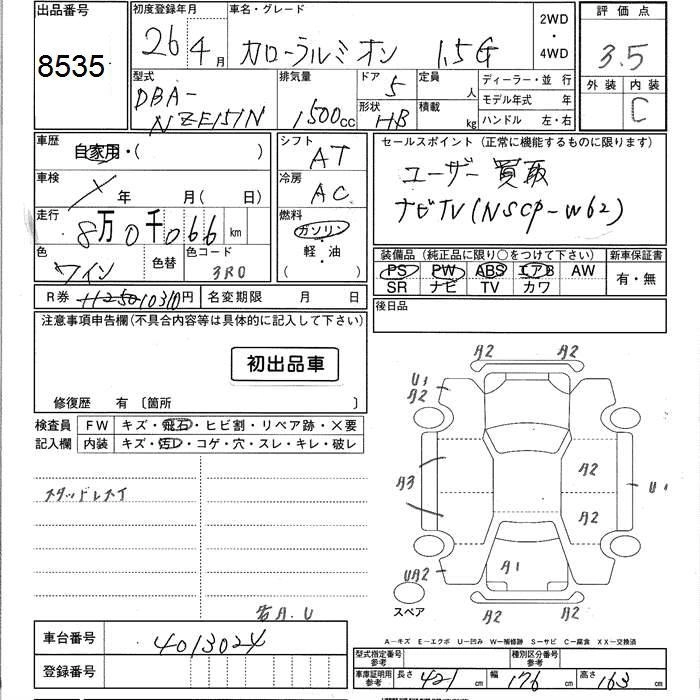 出品番号 初度登録年月 車名・グレード 2WD・4WD 評価点
8535 26 4月 カローラルミオン 1.5G 3.5
型式 排気量 ドア 定員 ディーラー・並行 外装 内装
DBA-NZE151N 1500cc 5 人 モデル年式 年 C
形状 HB 積載 kg ハンドル 左・右
車歴 自家用・( ) シフト AT セールスポイント(正常に機能するものに限ります)
車検 年 月(日) 冷房 AC ユーザー買取
走行 8万0千066km 燃料 ガソリン・軽・油 ナビTV(NSCP-W62)
色 ワイン 色替 色コード 3R0
装備品(純正品に限り○をつけて下さい) 新車保証書
PS PW ABS エアB AW 有・無
SR ナビ TV カワ
R券 円 名変期限 月 日 後日品
注意事項申告欄(不具合内容等は具体的に記入して下さい)
初出品車
修復歴 有 〔箇所 〕
検査員記入欄 FW キズ・飛石・ヒビ割・リペア跡・×要
内装 キズ・汚レ・コゲ・穴・スレ・キレ・破レ
スタッドレスタイ
A2 A2
U1
A2
A3 A2 U1
A2
UA2 A1
スペア A2 A2
A.U
A-キズ E-エクボ U-凹み W-補修跡 S-サビ C-腐食 XX-交換済
車台番号 4013024
登録番号
型式指定番号 参考 種別区分番号 参考
車庫証明用 参考 長さ 421cm 幅 176cm 高さ 163cm